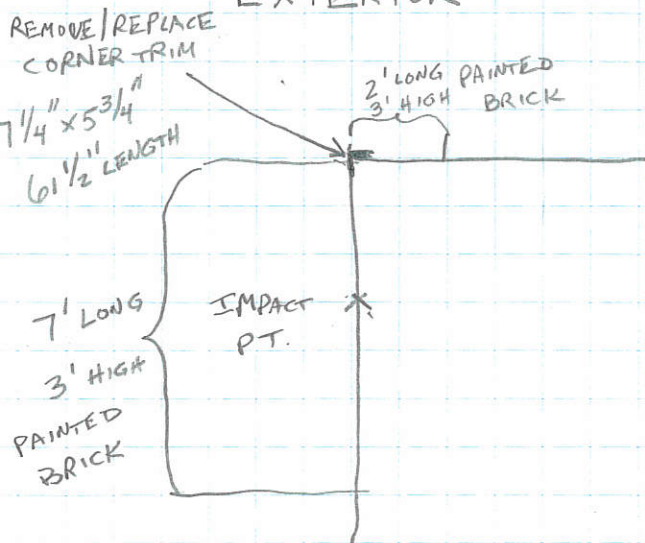 EXTERIOR
REMOVE/REPLACE
CORNER TRIM
7 1/4" x 5 3/4"
61 1/2" LENGTH
2' LONG PAINTED
3' HIGH BRICK
7' LONG
3' HIGH
PAINTED
BRICK
IMPACT
PT.